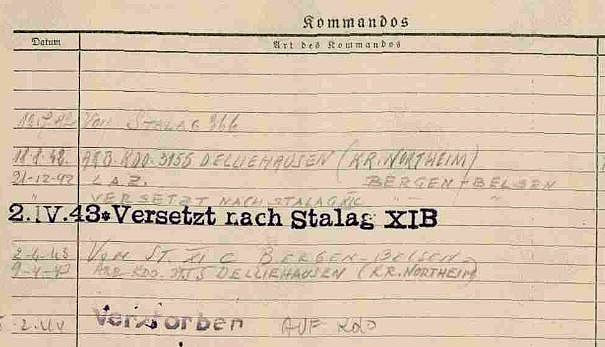 Kommandos
Datum Art des Kommandos
Von STALAG 366
ARB. KDO. 3155 DELLIEHAUSEN (KR. NORTHEIM)
21-12-42 LAZ. BERGEN-BELSEN
" VERSETZT NACH STALAG XIC " "
2.IV.43*Versetzt nach Stalag XIB
2-4-43 VOM ST. XI C BERGEN-BELSEN
9-4-43 ARB. KDO. 3155 DELLIEHAUSEN (KR. NORTHEIM)
Verstorben AUF KDO